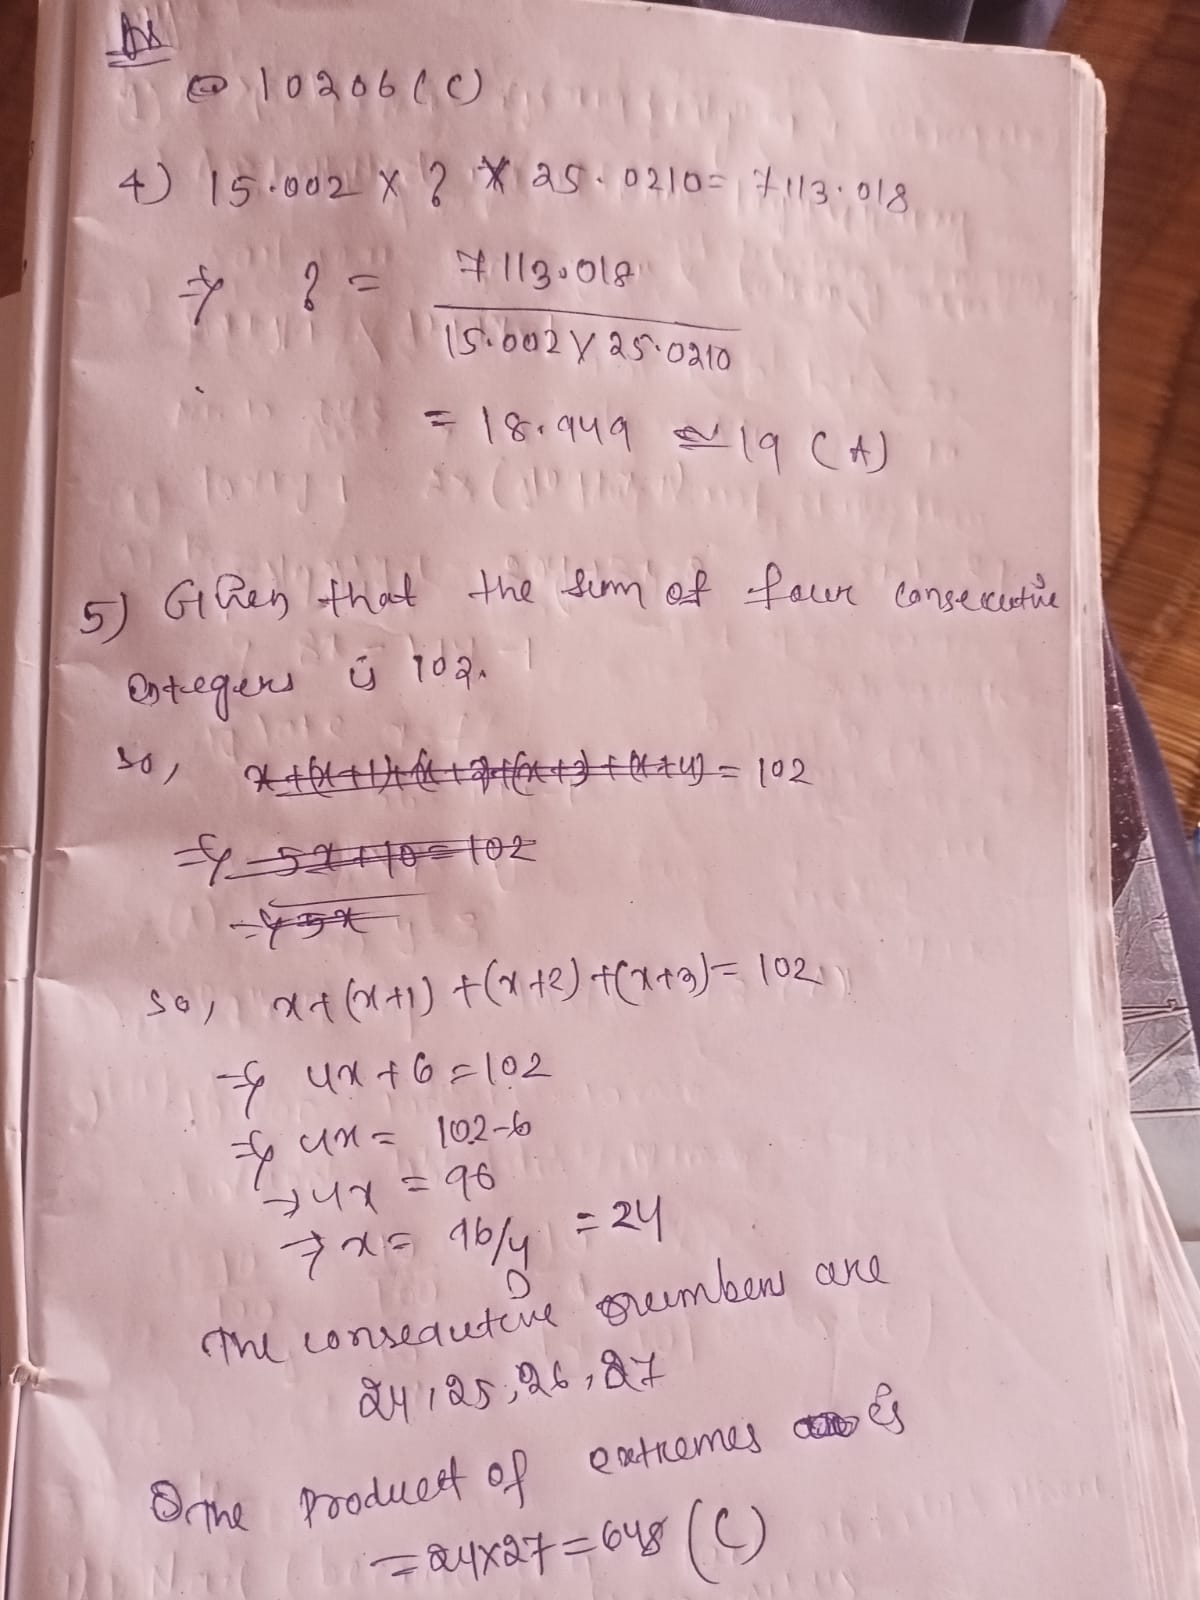 10206 (C)
4) 15.002 × ? × 25.0210 = 7113.018
⇒ ? = 7113.018
15.002 × 25.0210
= 18.949 ≃ 19 (A)
5) Given that the sum of four consecutive
integers is 102.
so, x+(x+1)+(x+2)+(x+3)+(x+4) = 102
⇒ 5x+10=102
⇒ 5x
so, x+(x+1)+(x+2)+(x+3)= 102
⇒ 4x+6=102
⇒ 4x= 102-6
→ 4x = 96
→ x= 96/4 = 24
The consecutive numbers are
24, 25, 26, 27
The Product of extremes is
= 24×27=648 (C)